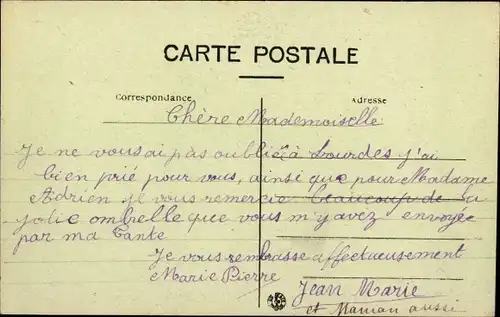 CARTE POSTALE
Correspondance Adresse
Chère Mademoiselle
Je ne vous ai pas oubliée à Lourdes j'ai
bien prié pour vous, ainsi que pour Madame
Adrien je vous remercie beaucoup de la
jolie ombrelle que vous m'y avez envoyée
par ma tante
Je vous rembrasse affectueusement
Marie Pierre
Jean Marie
et Maman aussi